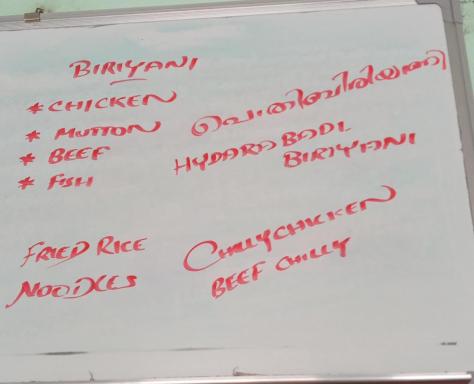 BIRIYANI
* CHICKEN
* MUTTON
* BEEF
* FISH
പൊതിബിരിയാണി
HYDARABADI
BIRIYANI
FRIED RICE
NOODLES
CHILLYCHICKEN
BEEF CHILLY